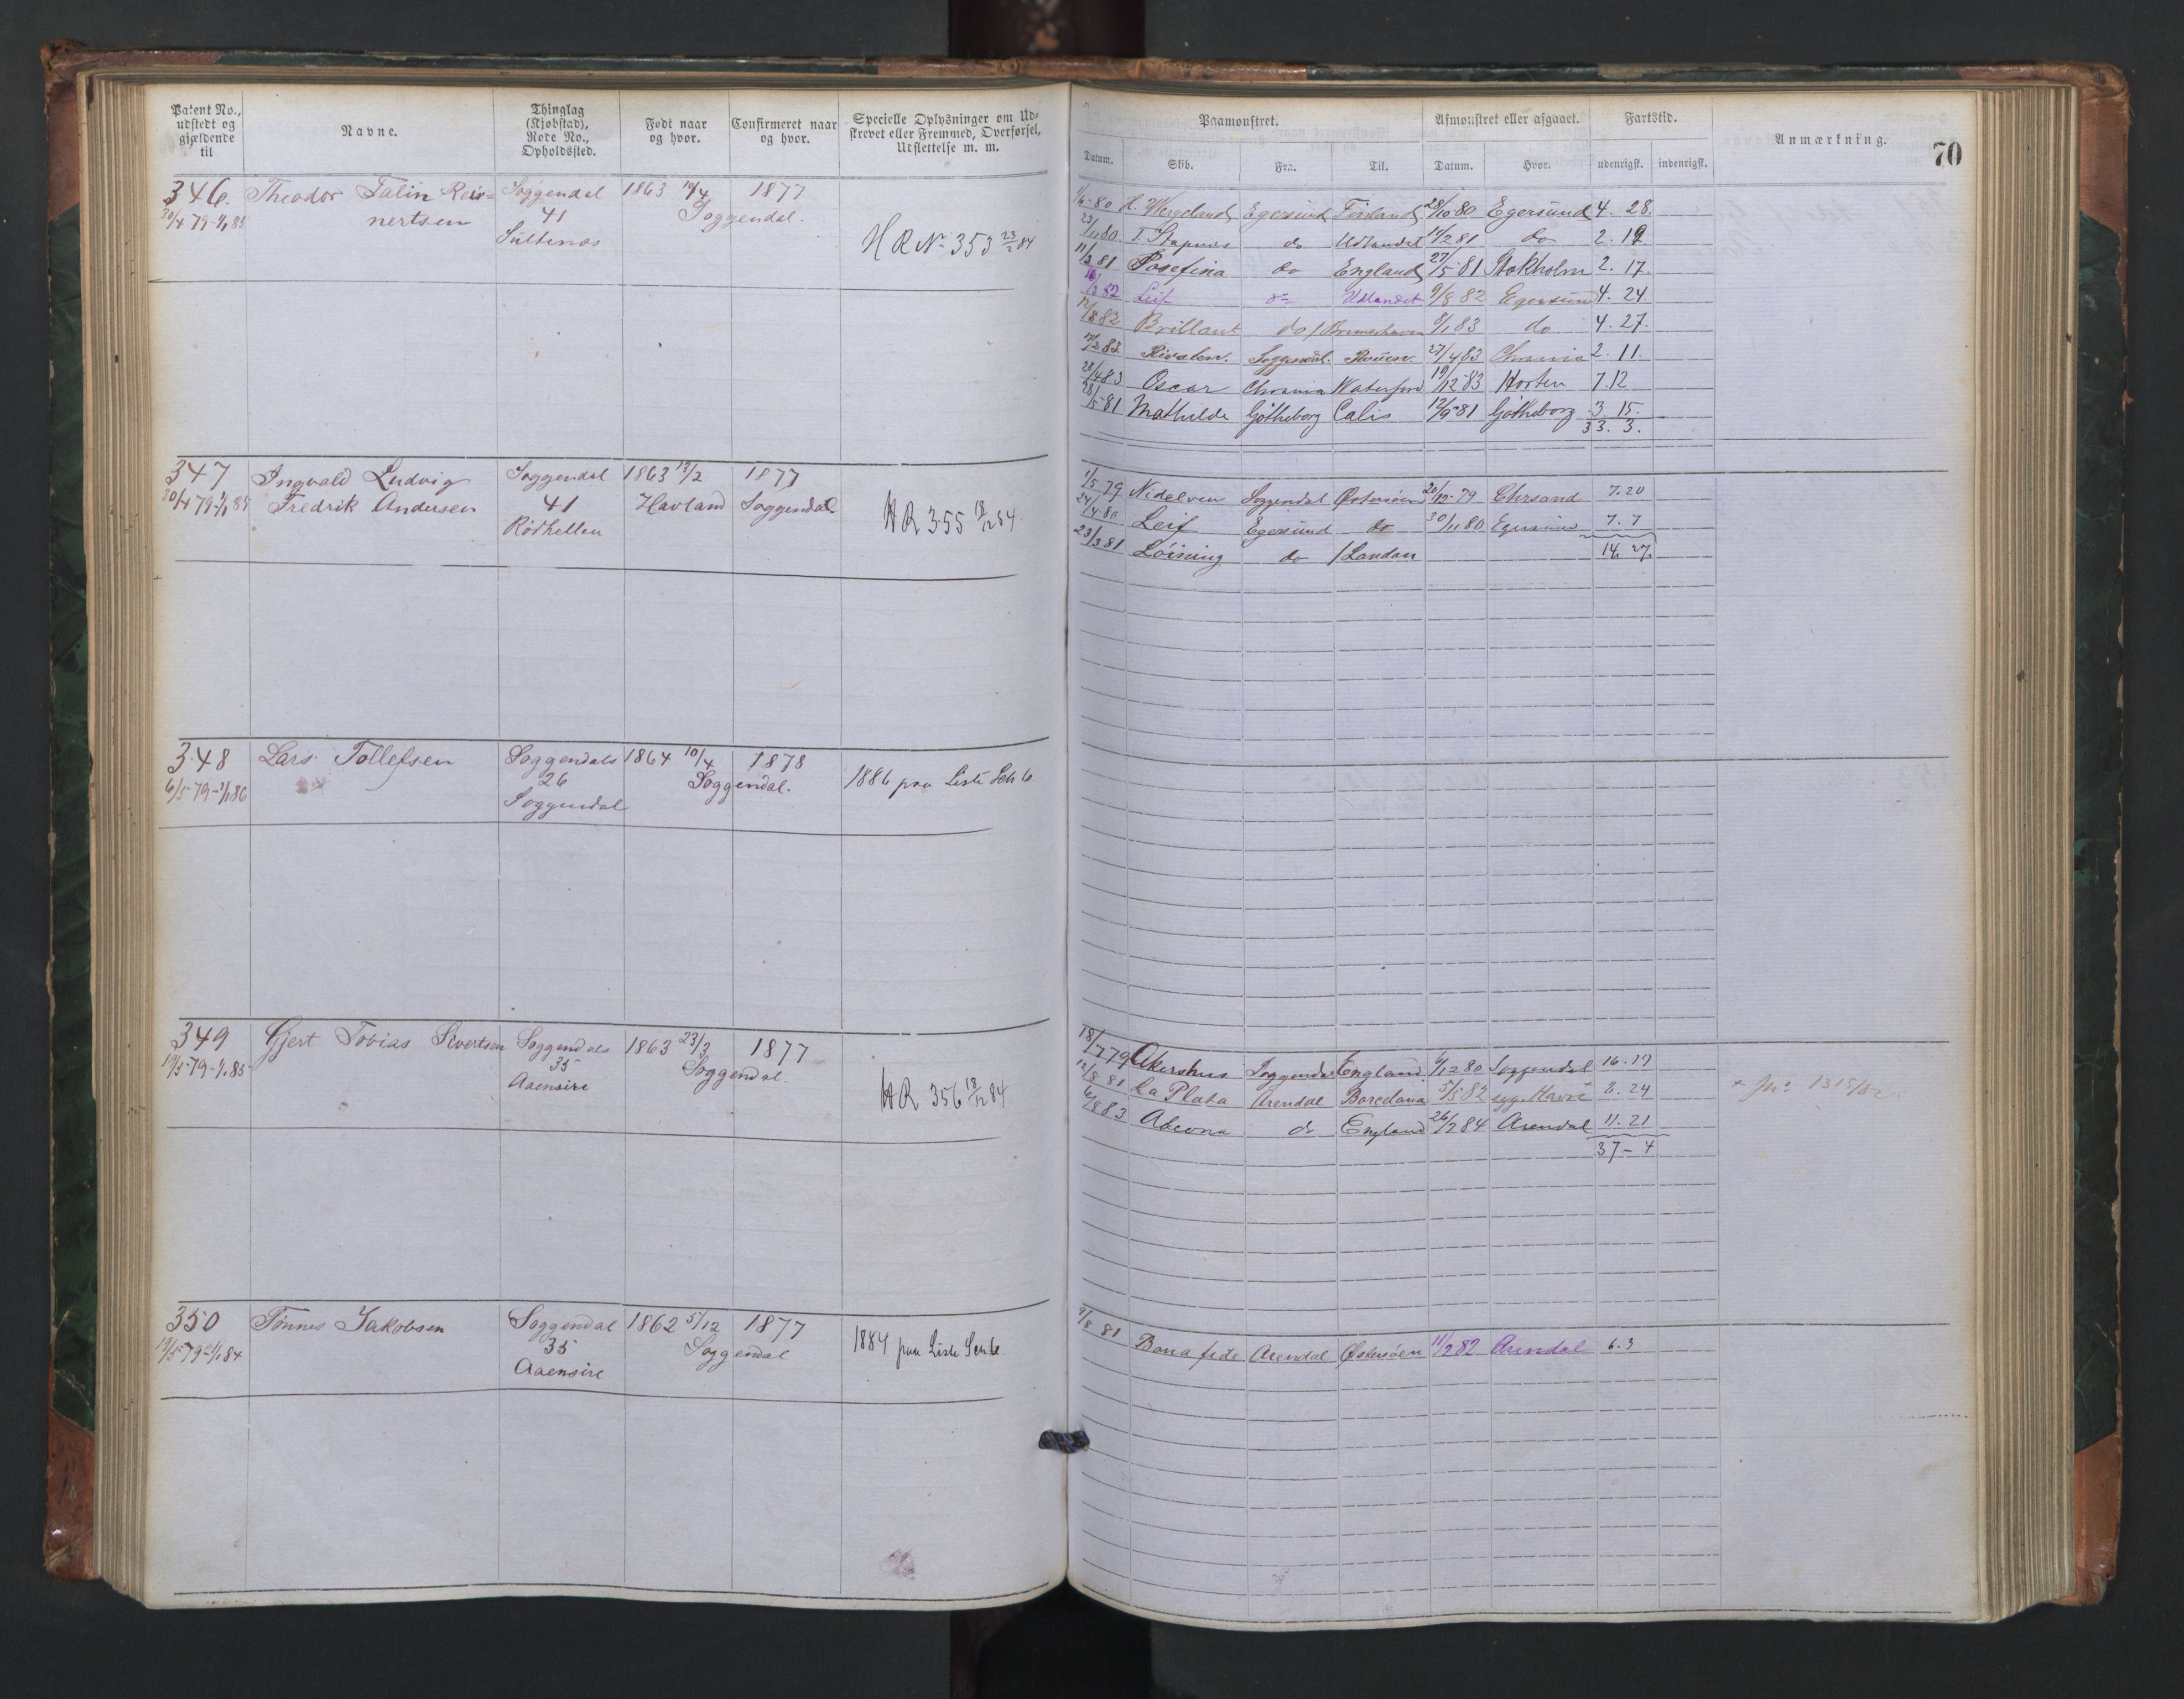 Patent No., udstedt og gjældende til
Navne.
Thinglag (Kjøbstad), Rode No., Opholdssted.
Født naar og hvor.
Confirmeret naar og hvor.
Specielle Oplysninger om Udskrevet eller Fremmed, Overførsel, Udslettelse m. m.
Paamønstret.
Afmønstret eller afgaaet.
Fartstid.
Anmærkning.
70
Datum. Skib. Fra. Til. Datum. Hvor. udenrigsk. indenrigsk.
346. Theodor Talin Rei- Soggendal 1863 19/4 1877
30/4 79-1/1 85 nertsen 41 Soggendal.
HR No 353 23/2 84
Wergeland Egersund Finland 28/10 80 Egersund 4. 28.
23/11 80 Udlandet 11/2 81 do 2. 19
11/3 81 Josefina do England 27/5 81 Stokholm 2. 17.
Leif do Udlandet 9/8 82 Egersund 4. 24.
12/8 82 Brillant do / Bremerhaven 8/1 83 do 4. 27.
Soggendal. 27/4 83 Chrania 2. 11.
28/4 83 Oscar Chrania Waterford 19/12 83 Horten 7.12
28/5 81 Mathilde Gøtheborg Calis 12/9 81 Gøtheborg 3. 15.
33. 3.
347 Ingvald Ludvig Soggendal 1863 13/2 1877
30/4 79-1/1 85 Fredrik Andersen 41 Havland Soggendal
Rødhellen
HR 355 18/12 84
1/5 79 Nidelven Soggendal Østersøen 20/12-79 Chrsand 7.20
24/4 80 Leif Egersund do 30/11 80 Egersund 7. 7
23/3 81 do / London 14. 27.
348 Lars Tollefsen Soggendals 1864 10/4 1878
6/5-79-1/1 86 26 Soggendal.
Soggendal
1886 paa Liste Sch 6.
349 Gjert Tobias Sivertsen Soggendals 1863 23/3 1877
19/5-79-1/1 85 35 Soggendal.
Aaensire
HR 356 18/12 84
18/7 79 Akershus Soggendal England. Soggendal 16. 17
12/8 81 La Plata Arendal 5/5 82 syg. Havre × 8. 24
6/3 83 Abeona do England 26/2 84 Arendal 11. 21
37 - 4
350 Tønnes Jakobsen Soggendal 1862 5/12 1877
19/5-79-1/1 84 35 Soggendal
Aaensire
1884 paa Liste Sch 6.
9/8 81 Bona fide Arendal Østersøen 11/2 82 Arendal 6.3